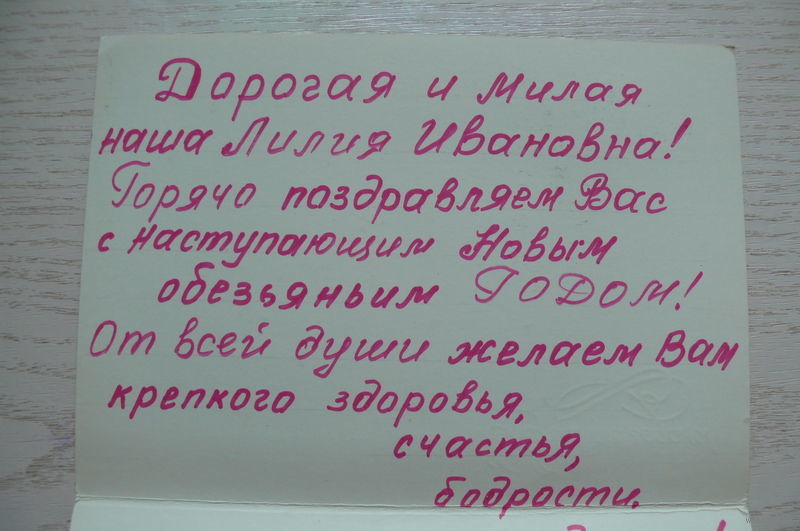 Дорогая и милая
наша Лилия Ивановна!
Горячо поздравляем Вас
с наступающим Новым
обезьяньим ГОДОМ!
От всей души желаем Вам
крепкого здоровья,
счастья,
бодрости.